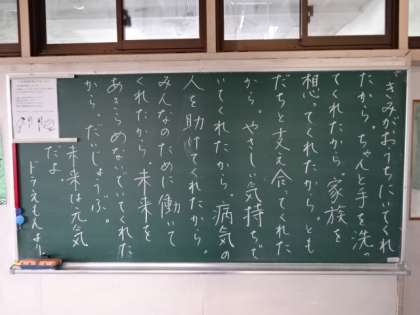 きみがおうちにいてくれ
たから。ちゃんと手を洗っ
てくれたから。家族を
想ってくれたから。とも
だちと支え合ってくれた
から。やさしい気持ちで
いてくれたから。病気の
人を助けてくれたから。
みんなのために働いて
くれたから。未来を
あきらめないでいてくれた
から。だいじょうぶ。
未来は元気
だよ。
ドラえもんより